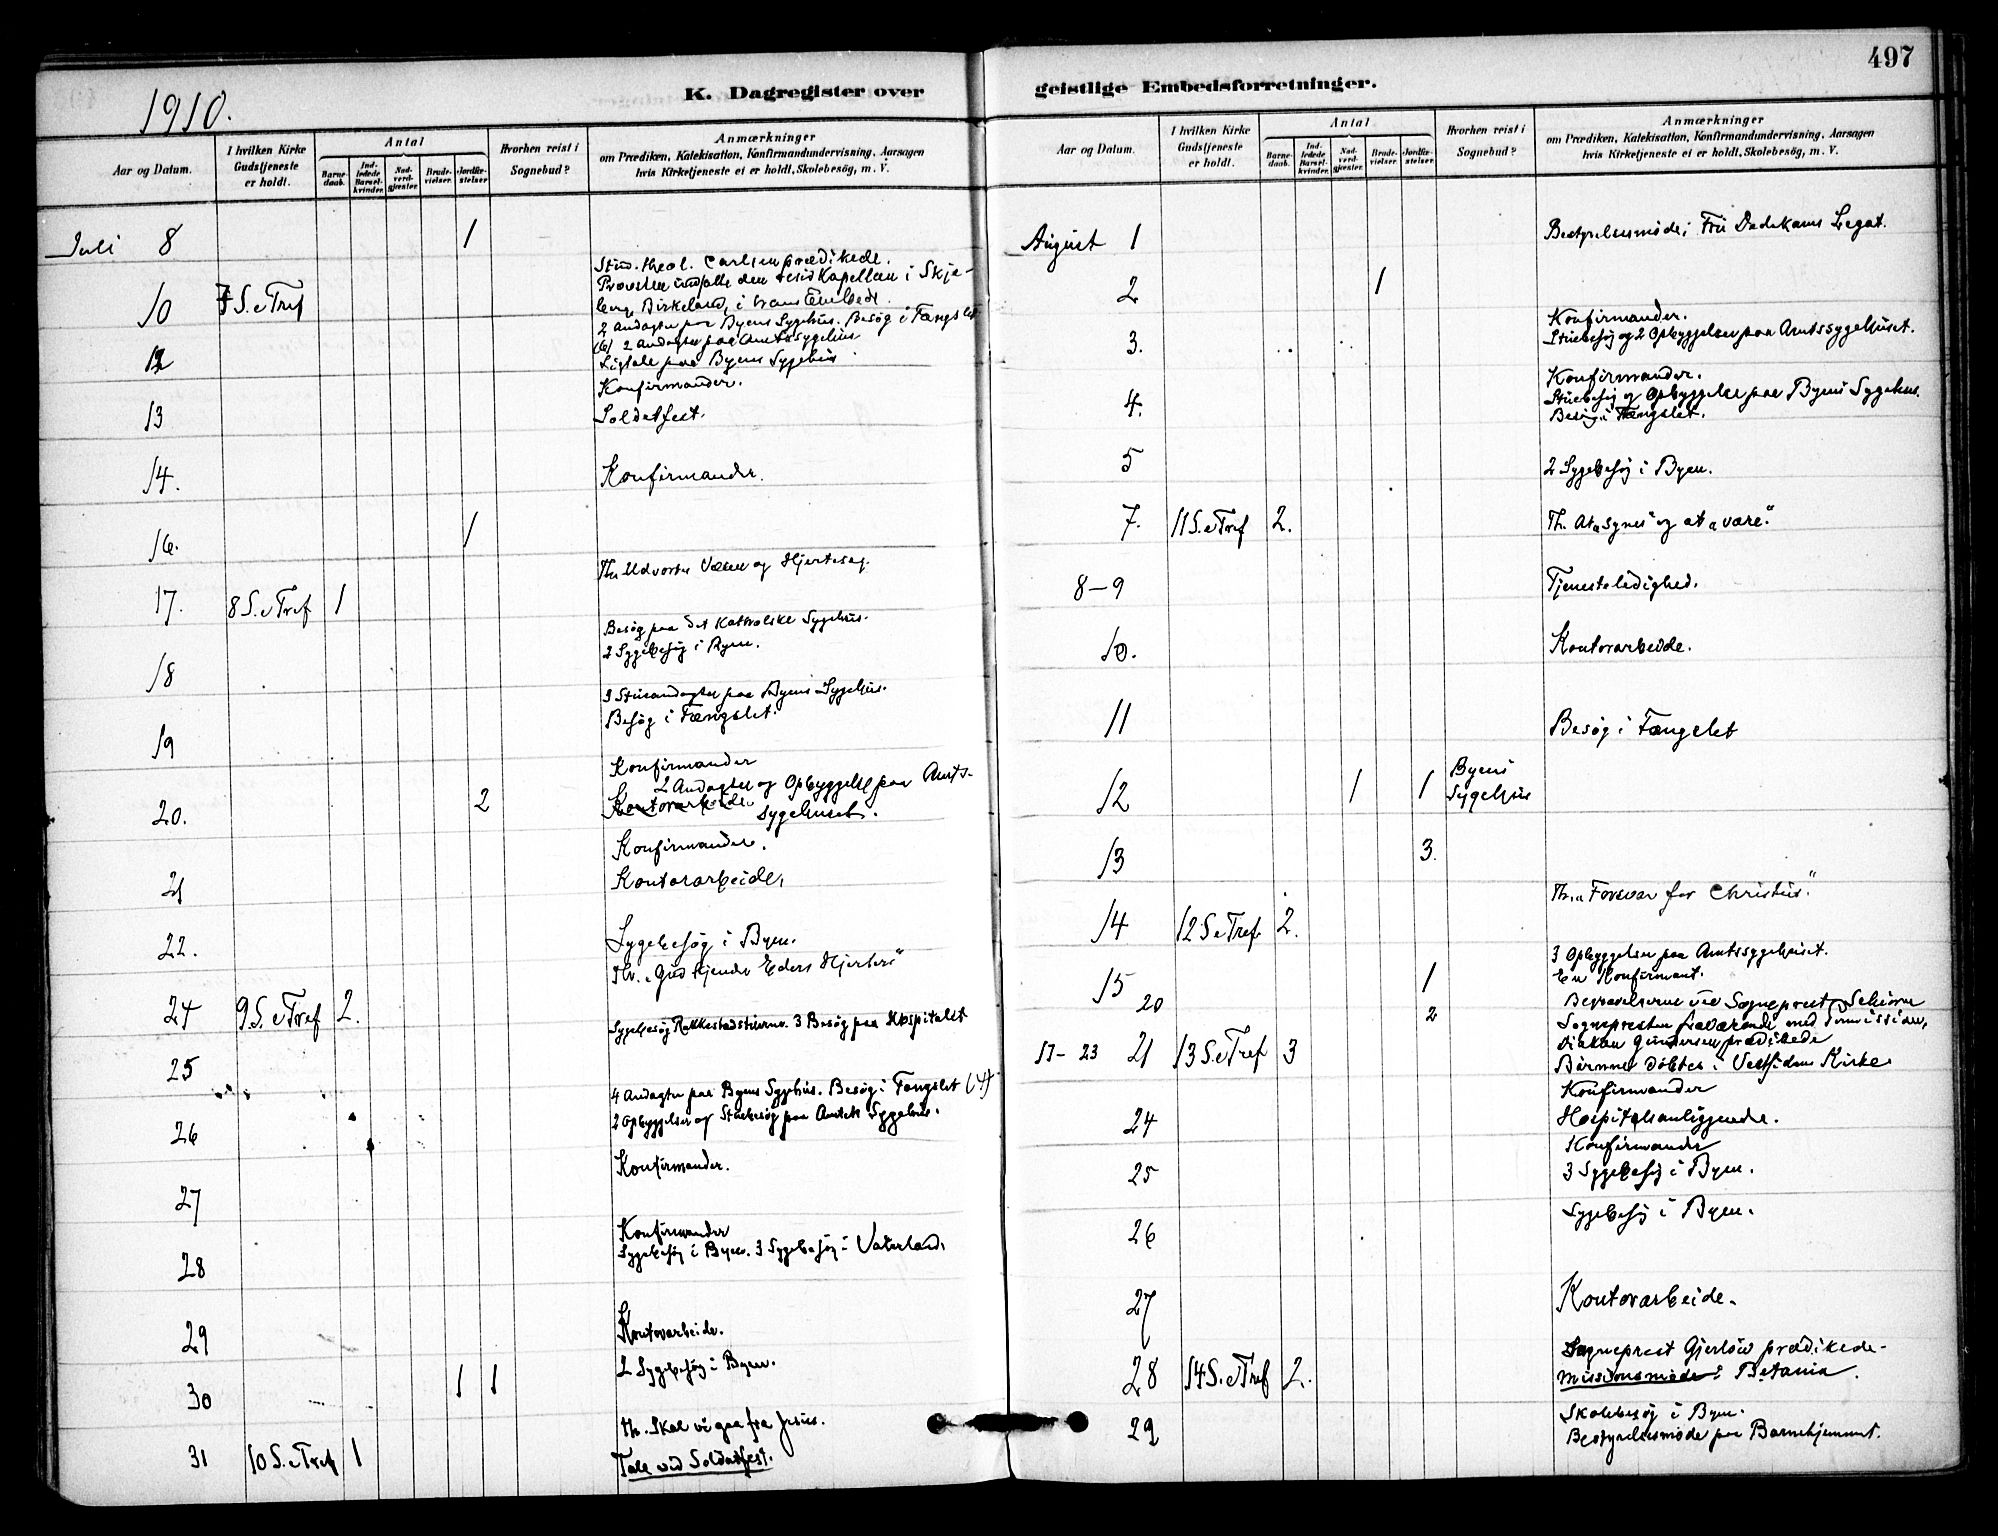 497
K. Dagregister over
geistlige Embedsforretninger.
1910.
Aar og Datum.
I hvilken Kirke Gudstjeneste er holdt.
Antal
Barnedaab.
Indledede Barselkvinder.
Nadverdgjester.
Brudevielser.
Jordfæstelser.
Hvorhen reist i Sognebud?
Anmærkninger
om Prædiken, Katekisation, Konfirmandundervisning, Aarsagen
hvis Kirketjeneste ei er holdt, Skolebesög, m. V.
Juli 8 1
Stud. theol. Carlsen prædikede.
Provsten indsatte den resid Kapellan i Skje-
berg, Birkeland, i hans Embede.
10 7 S. e Tref
2 Andagter paa Byens Sygehus. Besög i Fængslet
(6) 2 Andagter paa Amtssygehus
12
Ligtale paa Byens Sygehus.
Konfirmander.
13 Soldatfest.
14. Konfirmander.
16. 1
Th. Udvortes Væsen og Hjertesag.
17. 8 S. e Tref 1
Besög paa det Katholske Sygehus.
2 Sygebesög i Byen.
18
3 Stueandagter paa Byens Sygehus.
Besög i Fængslet.
19
Konfirmander
2 Andagter og Opbyggelse paa Amts-
20. 2 Kontorarbeide sygehuset.
Konfirmander.
21 Kontorarbeide.
22. Sygebesög i Byen.
Th. "Gud kjender Eders Hjerter"
24 9 S. e Tref 2.
Sygebesög Rakkestadsveien. 3 Besög paa Hospitalet
25
4 Andagter paa Byens Sygehus. Besög i Fængslet (4)
2 Opbyggelser og Stuebesög paa Amtets Sygehus.
26
Konfirmander.
27
Konfirmander
Sygebesög i Byen. 3 Sygebesög i Vaterland.
28
29 Kontorarbeide.
2 Sygebesög i Byen.
30 1 1
Th. Skal vi gaa fra Jesus.
31 10 S. e Tref 1 Tale ved Soldatfest.
Aar og Datum.
I hvilken Kirke Gudstjeneste er holdt.
Antal
Barnedaab.
Indledede Barselkvinder.
Nadverdgjester.
Brudevielser.
Jordfæstelser.
Hvorhen reist i Sognebud?
Anmærkninger
om Prædiken, Katekisation, Konfirmandundervisning, Aarsagen
hvis Kirketjeneste ei er holdt, Skolebesög, m. V.
August 1 Bestyrelsesmöde i Fru Dedekams Legat.
2 1
Konfirmander.
3. Stuebesög og 2 Opbyggelser paa Amtssygehuset.
Konfirmander.
4. Stuebesög og Opbyggelse paa Byens Sygehus.
Besög i Fængslet.
5 2 Sygebesög i Byen.
7. 11 S. e Tref 2. Th. At "synes" og at "være".
8–9 Tjenesteledighed.
10. Kontorarbeide.
11 Besög i Fængslet
12 1 1 Byens Sygehus
13 3.
Th. "Forsvar for Christus".
14 12 S e Tref 2.
3 Opbyggelser paa Amtssygehuset.
15 1 En Konfirmant.
20 2 Begravelserne ved Sogneprest Schiörn
Sognepresten fraværende med Permission,
17–23 21 13 S. e Tref 3 Diakon Gundersen prædikede
Börnene döbtes i Vestsidens Kirke
Konfirmander
24 Hospitalsanliggender.
Konfirmander
25 3 Sygebesög i Byen.
26 Sygebesög i Byen.
27 Kontorarbeide.
Sogneprest Gjerlöw prædikede.
28 14 S. e Tref 2. Missionsmöde i Betania.
Skolebesög i Byen.
29 Bestyrelsesmöde paa Barnehjemmet.